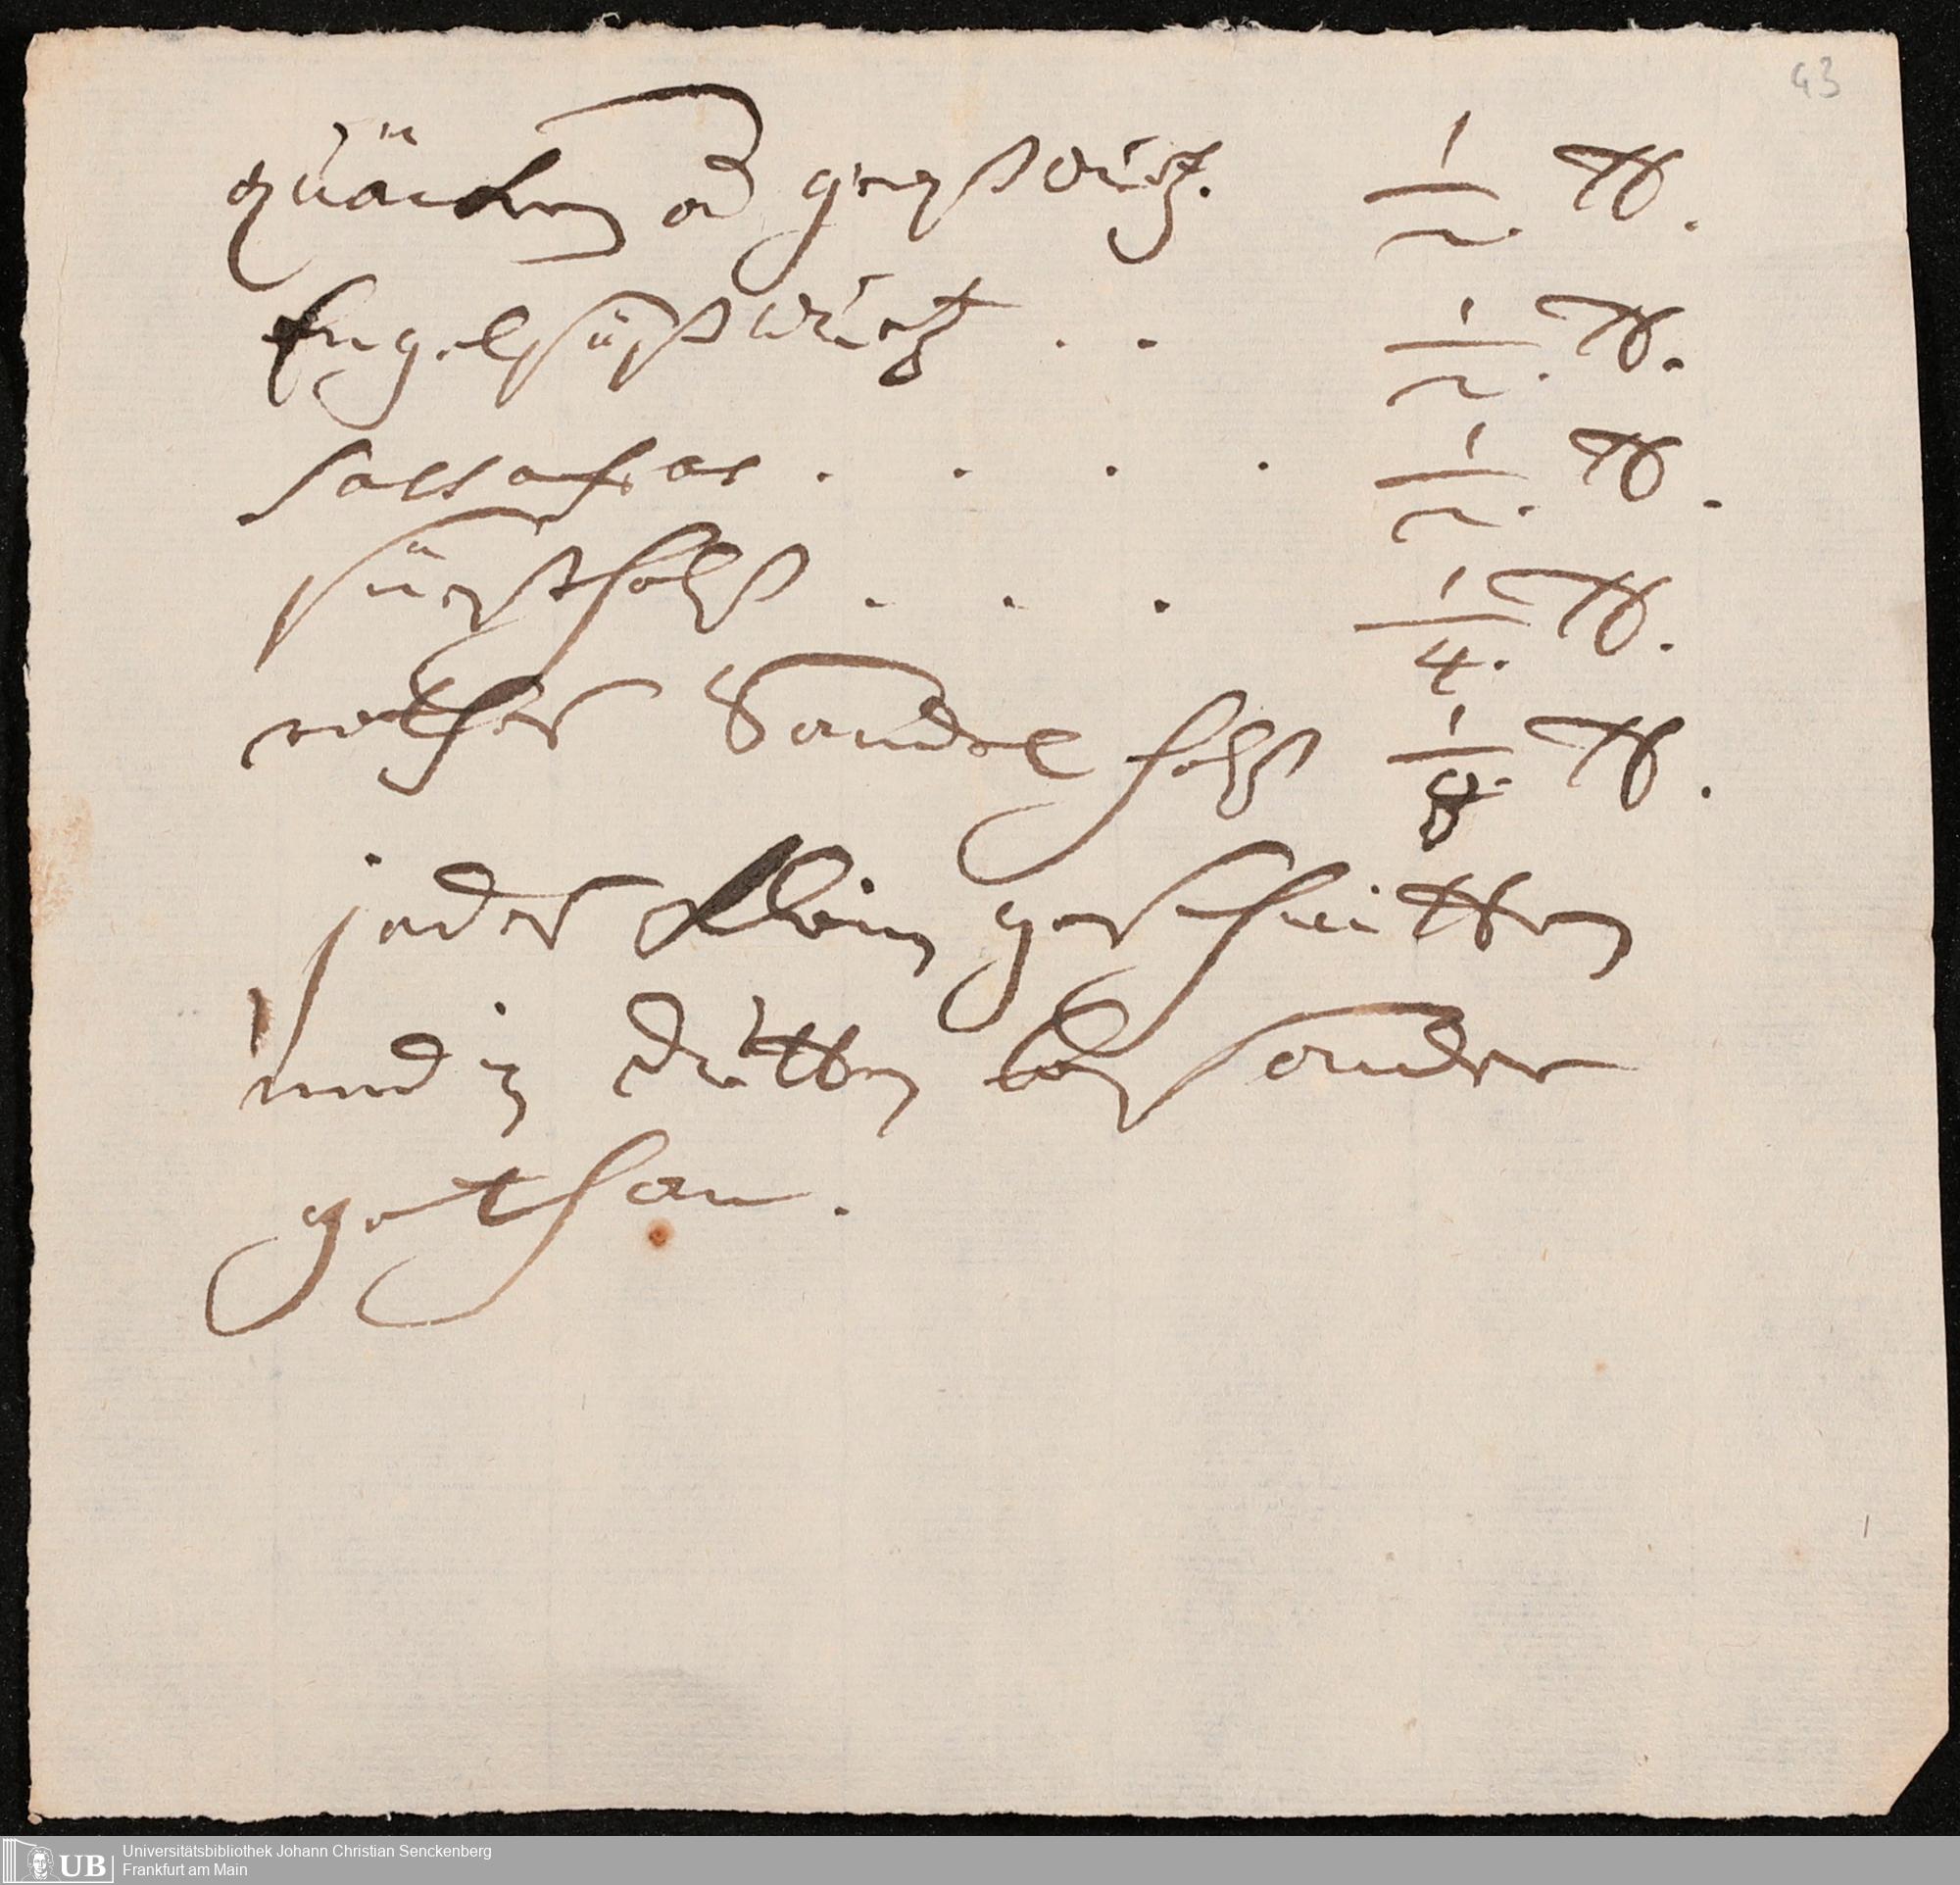 43
quäcken od graßwurtz. 1/2. ℔.
Engelsüßwurtz . . 1/2. ℔.
sassafras . . . . 1/2. ℔.
süeßholtz . . . 1/4. ℔.
rother Sandel holtz 1/8. ℔.
jedes klein geschnitten
und in dütten besonder
gethan.
UB Universitätsbibliothek Johann Christian Senckenberg
Frankfurt am Main